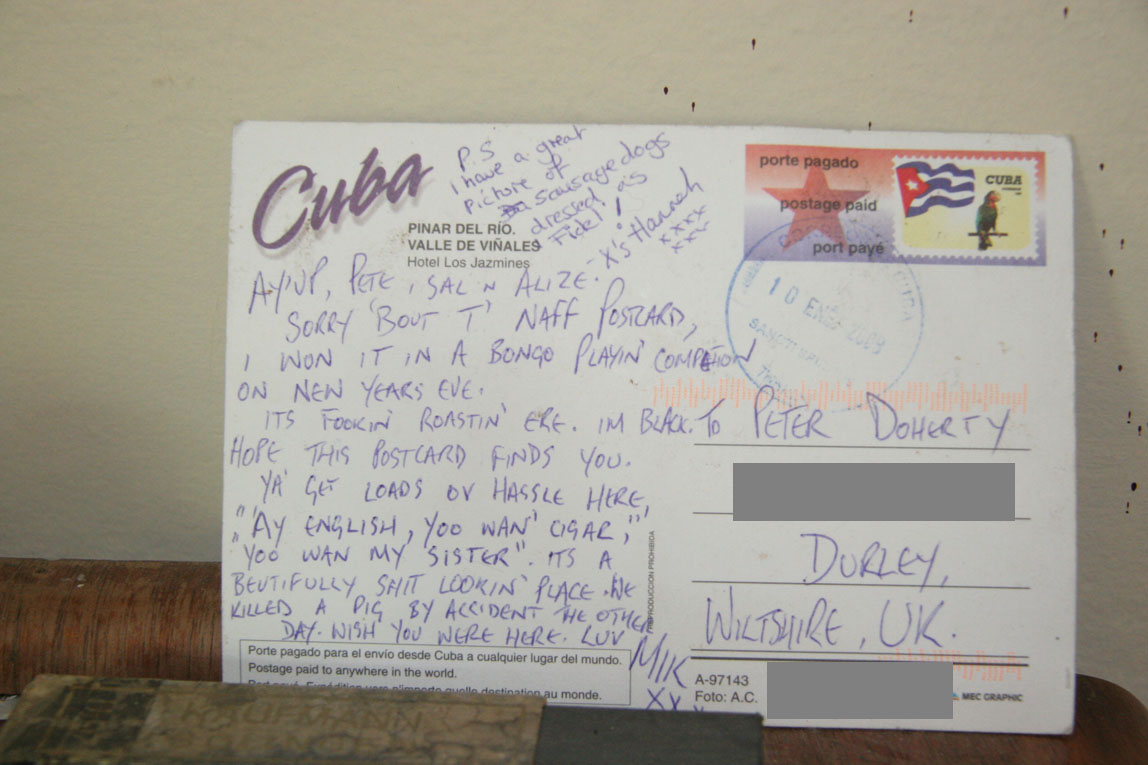 Cuba
PINAR DEL RÍO.
VALLE DE VIÑALES
Hotel Los Jazmines
P.S
I have a great
picture of
sausage dogs
dressed as
Fidel!
X's Hannah
xxxx
xxx
AY'UP, PETE, SAL 'N ALIZE.
SORRY 'BOUT T' NAFF POSTCARD,
I WON IT IN A BONGO PLAYIN' COMPETION
ON NEW YEARS EVE.
ITS FOOKIN' ROASTIN' ERE. IM BLACK.
HOPE THIS POSTCARD FINDS YOU.
YA' GET LOADS OV HASSLE HERE,
"AY ENGLISH, YOO WAN' CIGAR,"
"YOO WAN MY SISTER". ITS A
BEUTIFULLY SHIT LOOKIN' PLACE. WE
KILLED A PIG BY ACCIDENT THE OTHER
DAY. WISH YOU WERE HERE. LUV
MIK
XXX
Porte pagado para el envío desde Cuba a cualquier lugar del mundo.
Postage paid to anywhere in the world.
Port payé. Expédition vers n'importe quelle destination au monde.
REPRODUCCION PROHIBIDA
porte pagado
postage paid
port payé
CUBA
10 ENE
TO PETER DOHERTY
DURLEY,
WILTSHIRE, UK.
A-97143
Foto: A.C.
MEC GRAPHIC
KAUFMANN